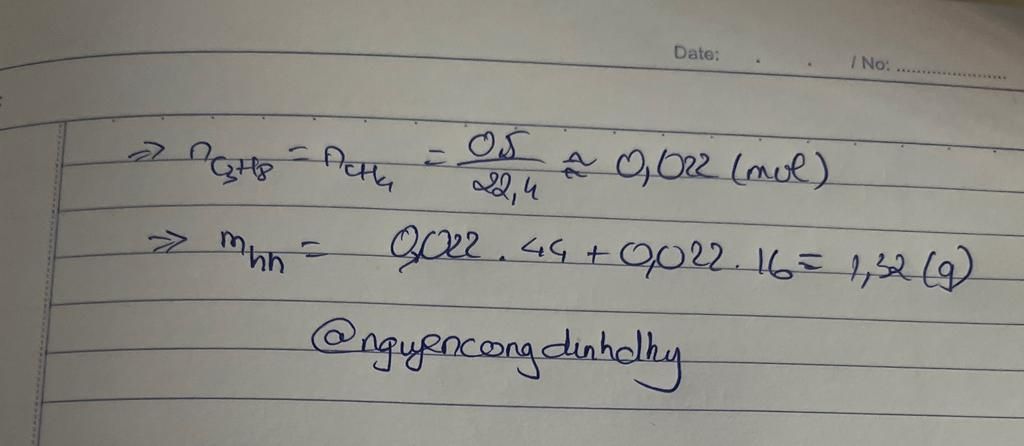 Date: . . / No: ....................
⇒ nC3H8 = nCH4 = 0,5/22,4 ≈ 0,022 (mol)
⇒ mhh = 0,022 . 44 + 0,022 . 16 = 1,32 (g)
@nguyencongdinhdhy